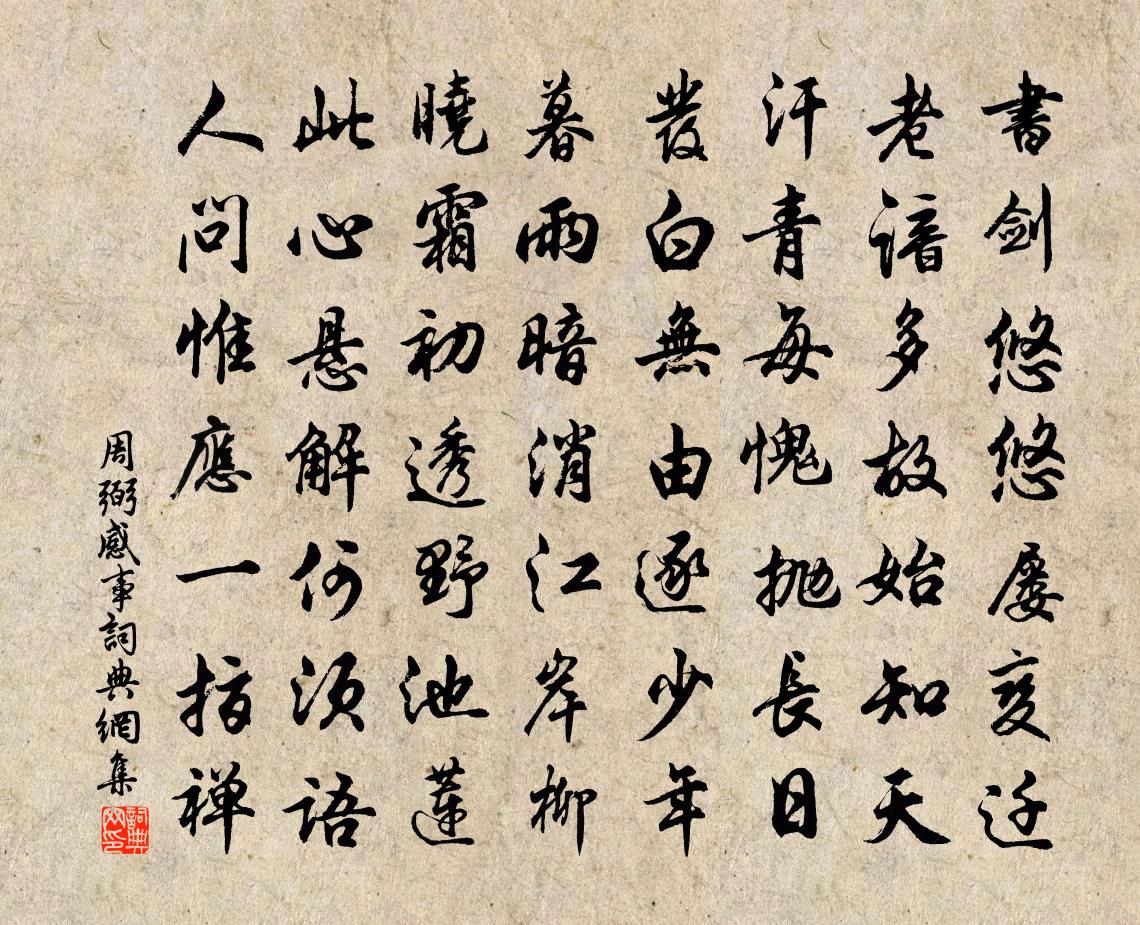 書剑悠悠屡变迁
老谙多故始知天
汗青每愧抛長日
發白無由逐少年
暮雨暗消江岸柳
曉霜初透野池蓮
此心悬解何须語
人问惟應一指禅
周弼感事詞典網集
詞典网印